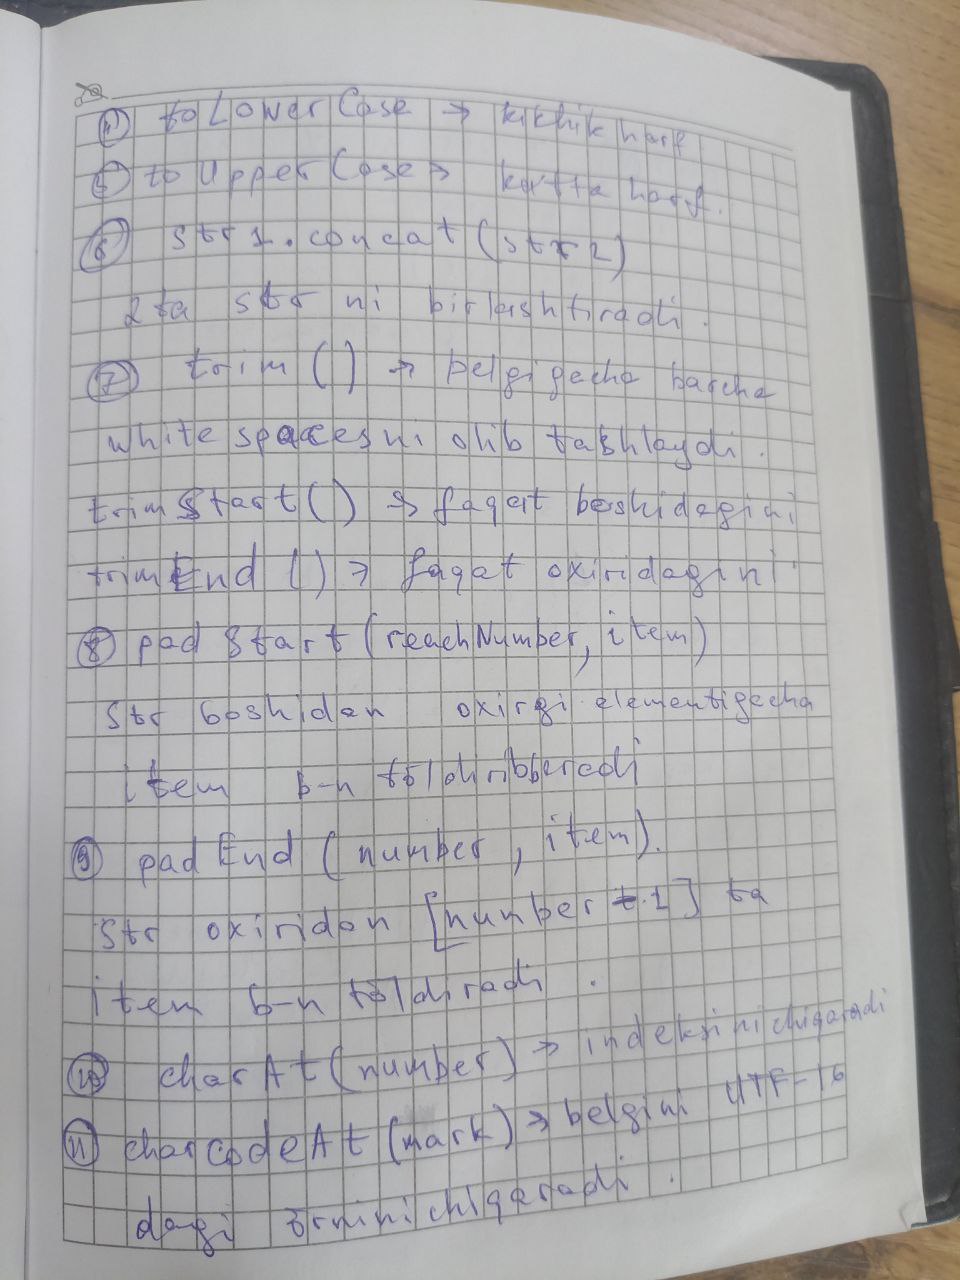 ④ toLowerCase → kichik harf
⑤ toUpperCase → katta harf.
⑥ str1.concat(str2)
2ta str ni birlashtiradi.
⑦ trim() → belgigacha barcha
white spacesni olib tashlaydi.
trimStart() → faqat boshidagini
trimEnd() → faqat oxiridagini
⑧ padStart(reachNumber, item)
str boshidan oxirgi elementigacha
item b-n tõldiribberadi
⑨ padEnd(number, item).
str oxiridan [number-1] ta
item b-n tõldiradi.
⑩ charAt(number) → indeksini chiqaradi
⑪ charCodeAt(mark) → belgini UTF-16
dagi õrnini chiqaradi.